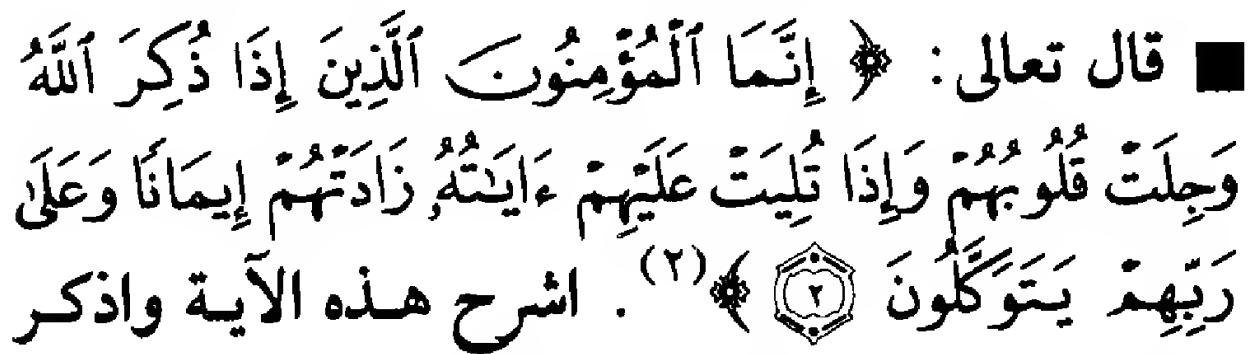 ■ قال تعالى: ﴿ إِنَّمَا ٱلْمُؤْمِنُونَ ٱلَّذِينَ إِذَا ذُكِرَ ٱللَّهُ
وَجِلَتْ قُلُوبُهُمْ وَإِذَا تُلِيَتْ عَلَيْهِمْ ءَايَـٰتُهُۥ زَادَتْهُمْ إِيمَانًا وَعَلَىٰ
رَبِّهِمْ يَتَوَكَّلُونَ ٢ ﴾(٢) . اشرح هذه الآية واذكر